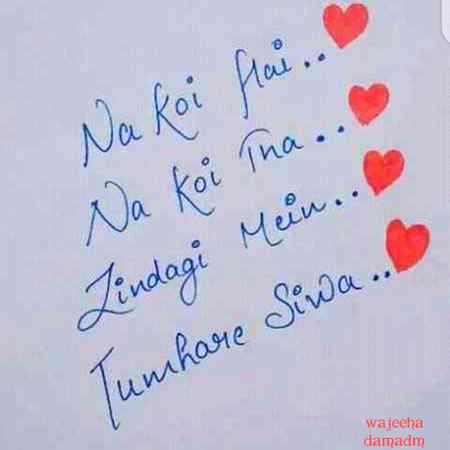 Na Koi Hai..
Na Koi Tha..
Zindagi Mein..
Tumhare Siwa..
wajeeha
damadm